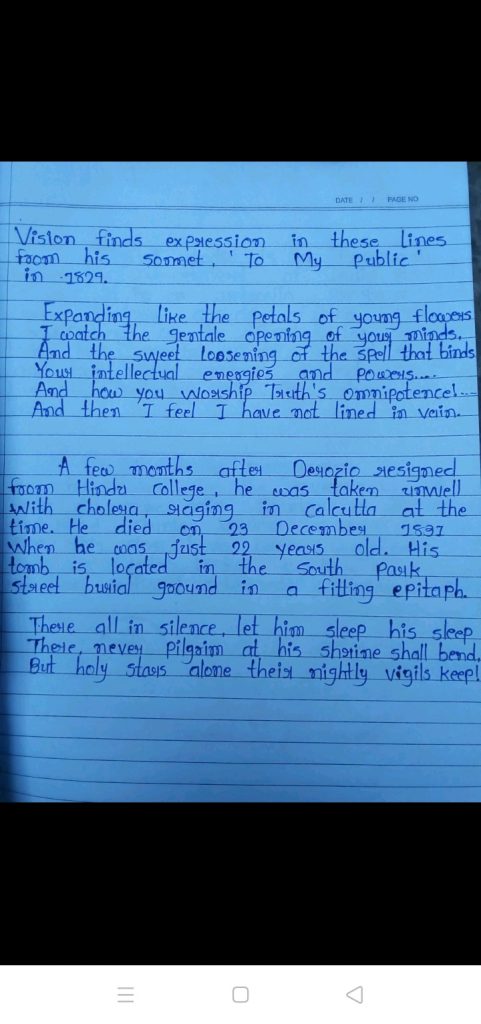 DATE / / PAGE NO
Vision finds expression in these lines
from his sonnet, 'To My Public'
in 1829.
Expanding like the petals of young flowers
I watch the gentale opening of your minds,
And the sweet loosening of the spell that binds
Your intellectual energies and powers....
And how you worship Truth's omnipotence!....
And then I feel I have not lined in vein.
A few months after Derozio resigned
from Hindu College, he was taken unwell
with cholera, raging in Calcutta at the
time. He died on 23 December 1897
When he was just 22 years old. His
tomb is located in the South Park
street burial ground in a fitting epitaph.
There all in silence, let him sleep his sleep
There, never Pilgrim at his shrine shall bend,
But holy stars alone their nightly vigils keep!